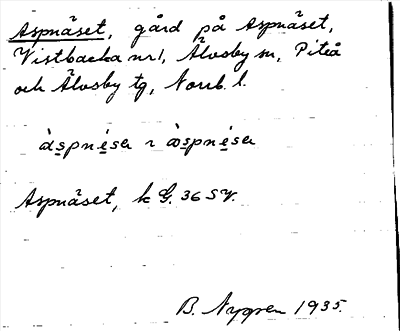 Aspnäset, gård på Aspnäset,
Vistbacka nr 1, Älvsby sn, Piteå
och Älvsby tg, Norrb. l.
àspnésa ɿ æ̀spnésa
Aspnäset, k G. 36 SV.
B. Nygren 1935.